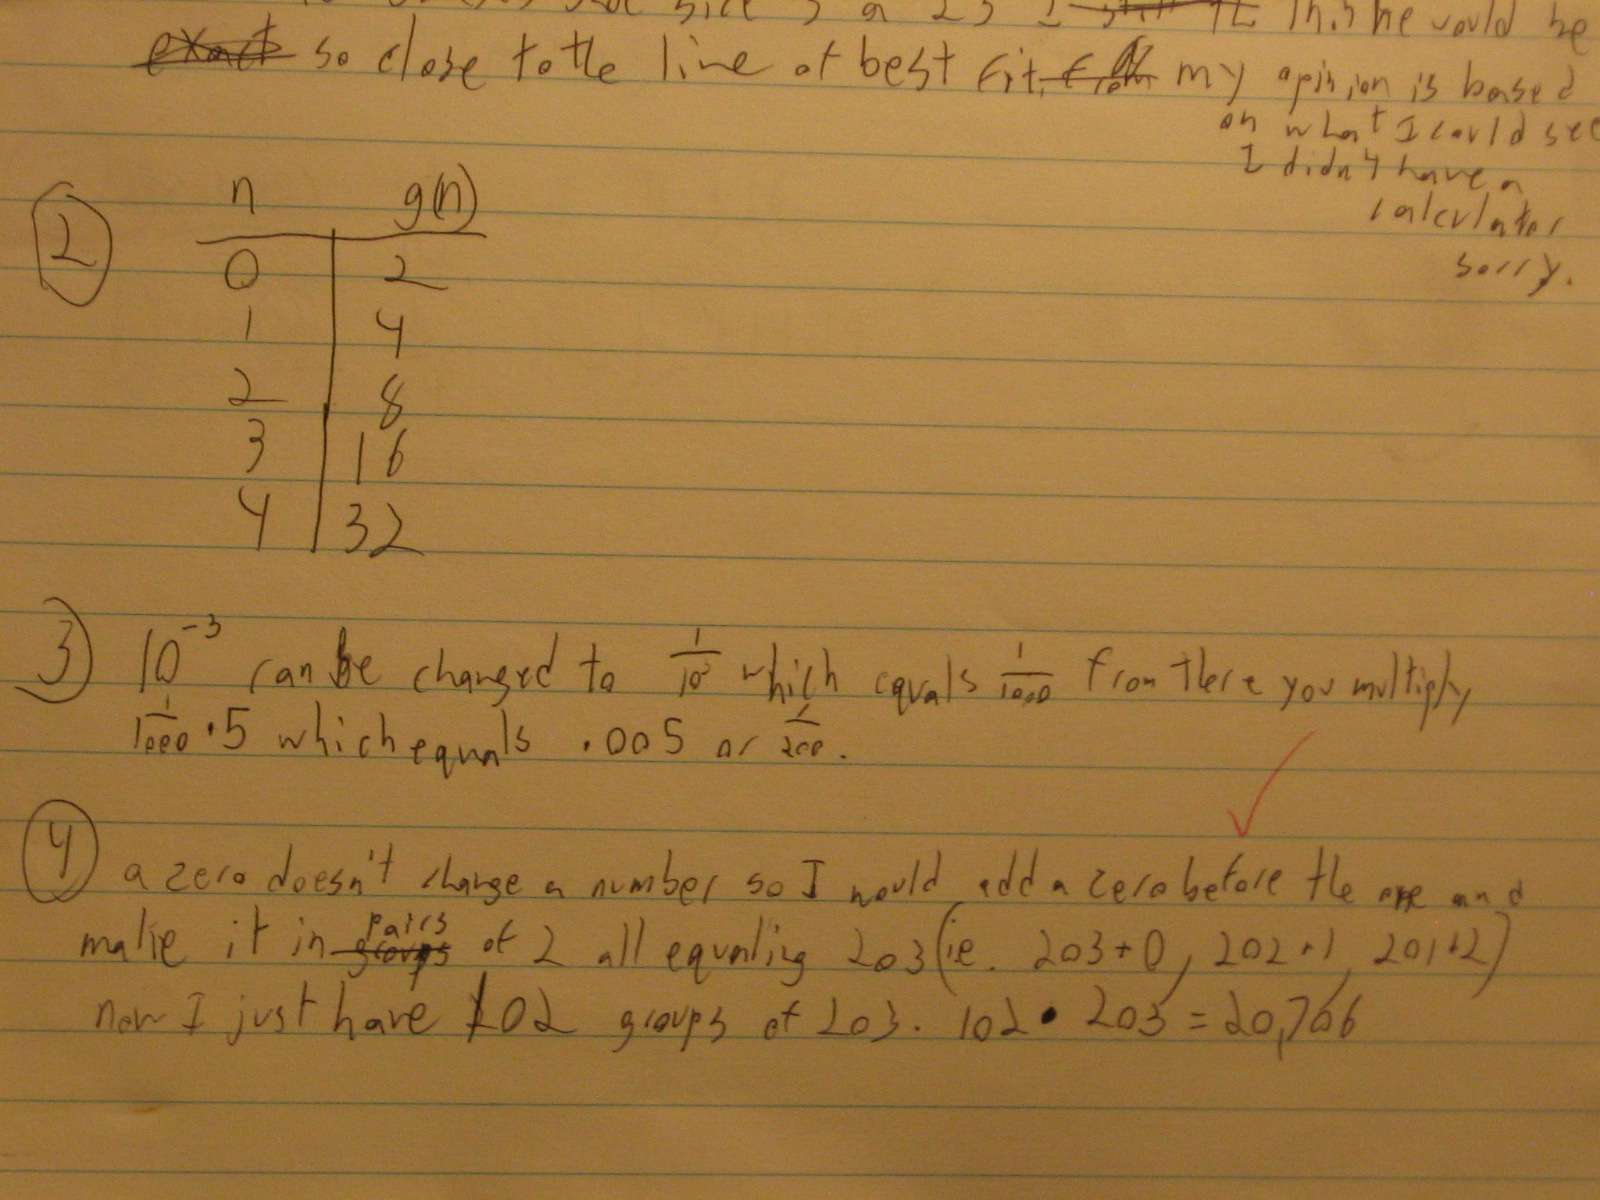 exact so close to the line of best fit. my opinion is based
on what I could see
I didn't have a
calculator
sorry.
2
n g(n)
0 2
1 4
2 8
3 16
4 32
3) 10⁻³ can be changed to 1/10³ which equals 1/1000 from there you multiply
1/1000 · 5 which equals .005 or 1/200.
4 a zero doesn't change a number so I would add a zero before the one and
pairs
make it in groups of 2 all equaling 203 (ie. 203+0, 202+1, 201+2)
now I just have 102 groups of 203. 102 • 203 = 20,706